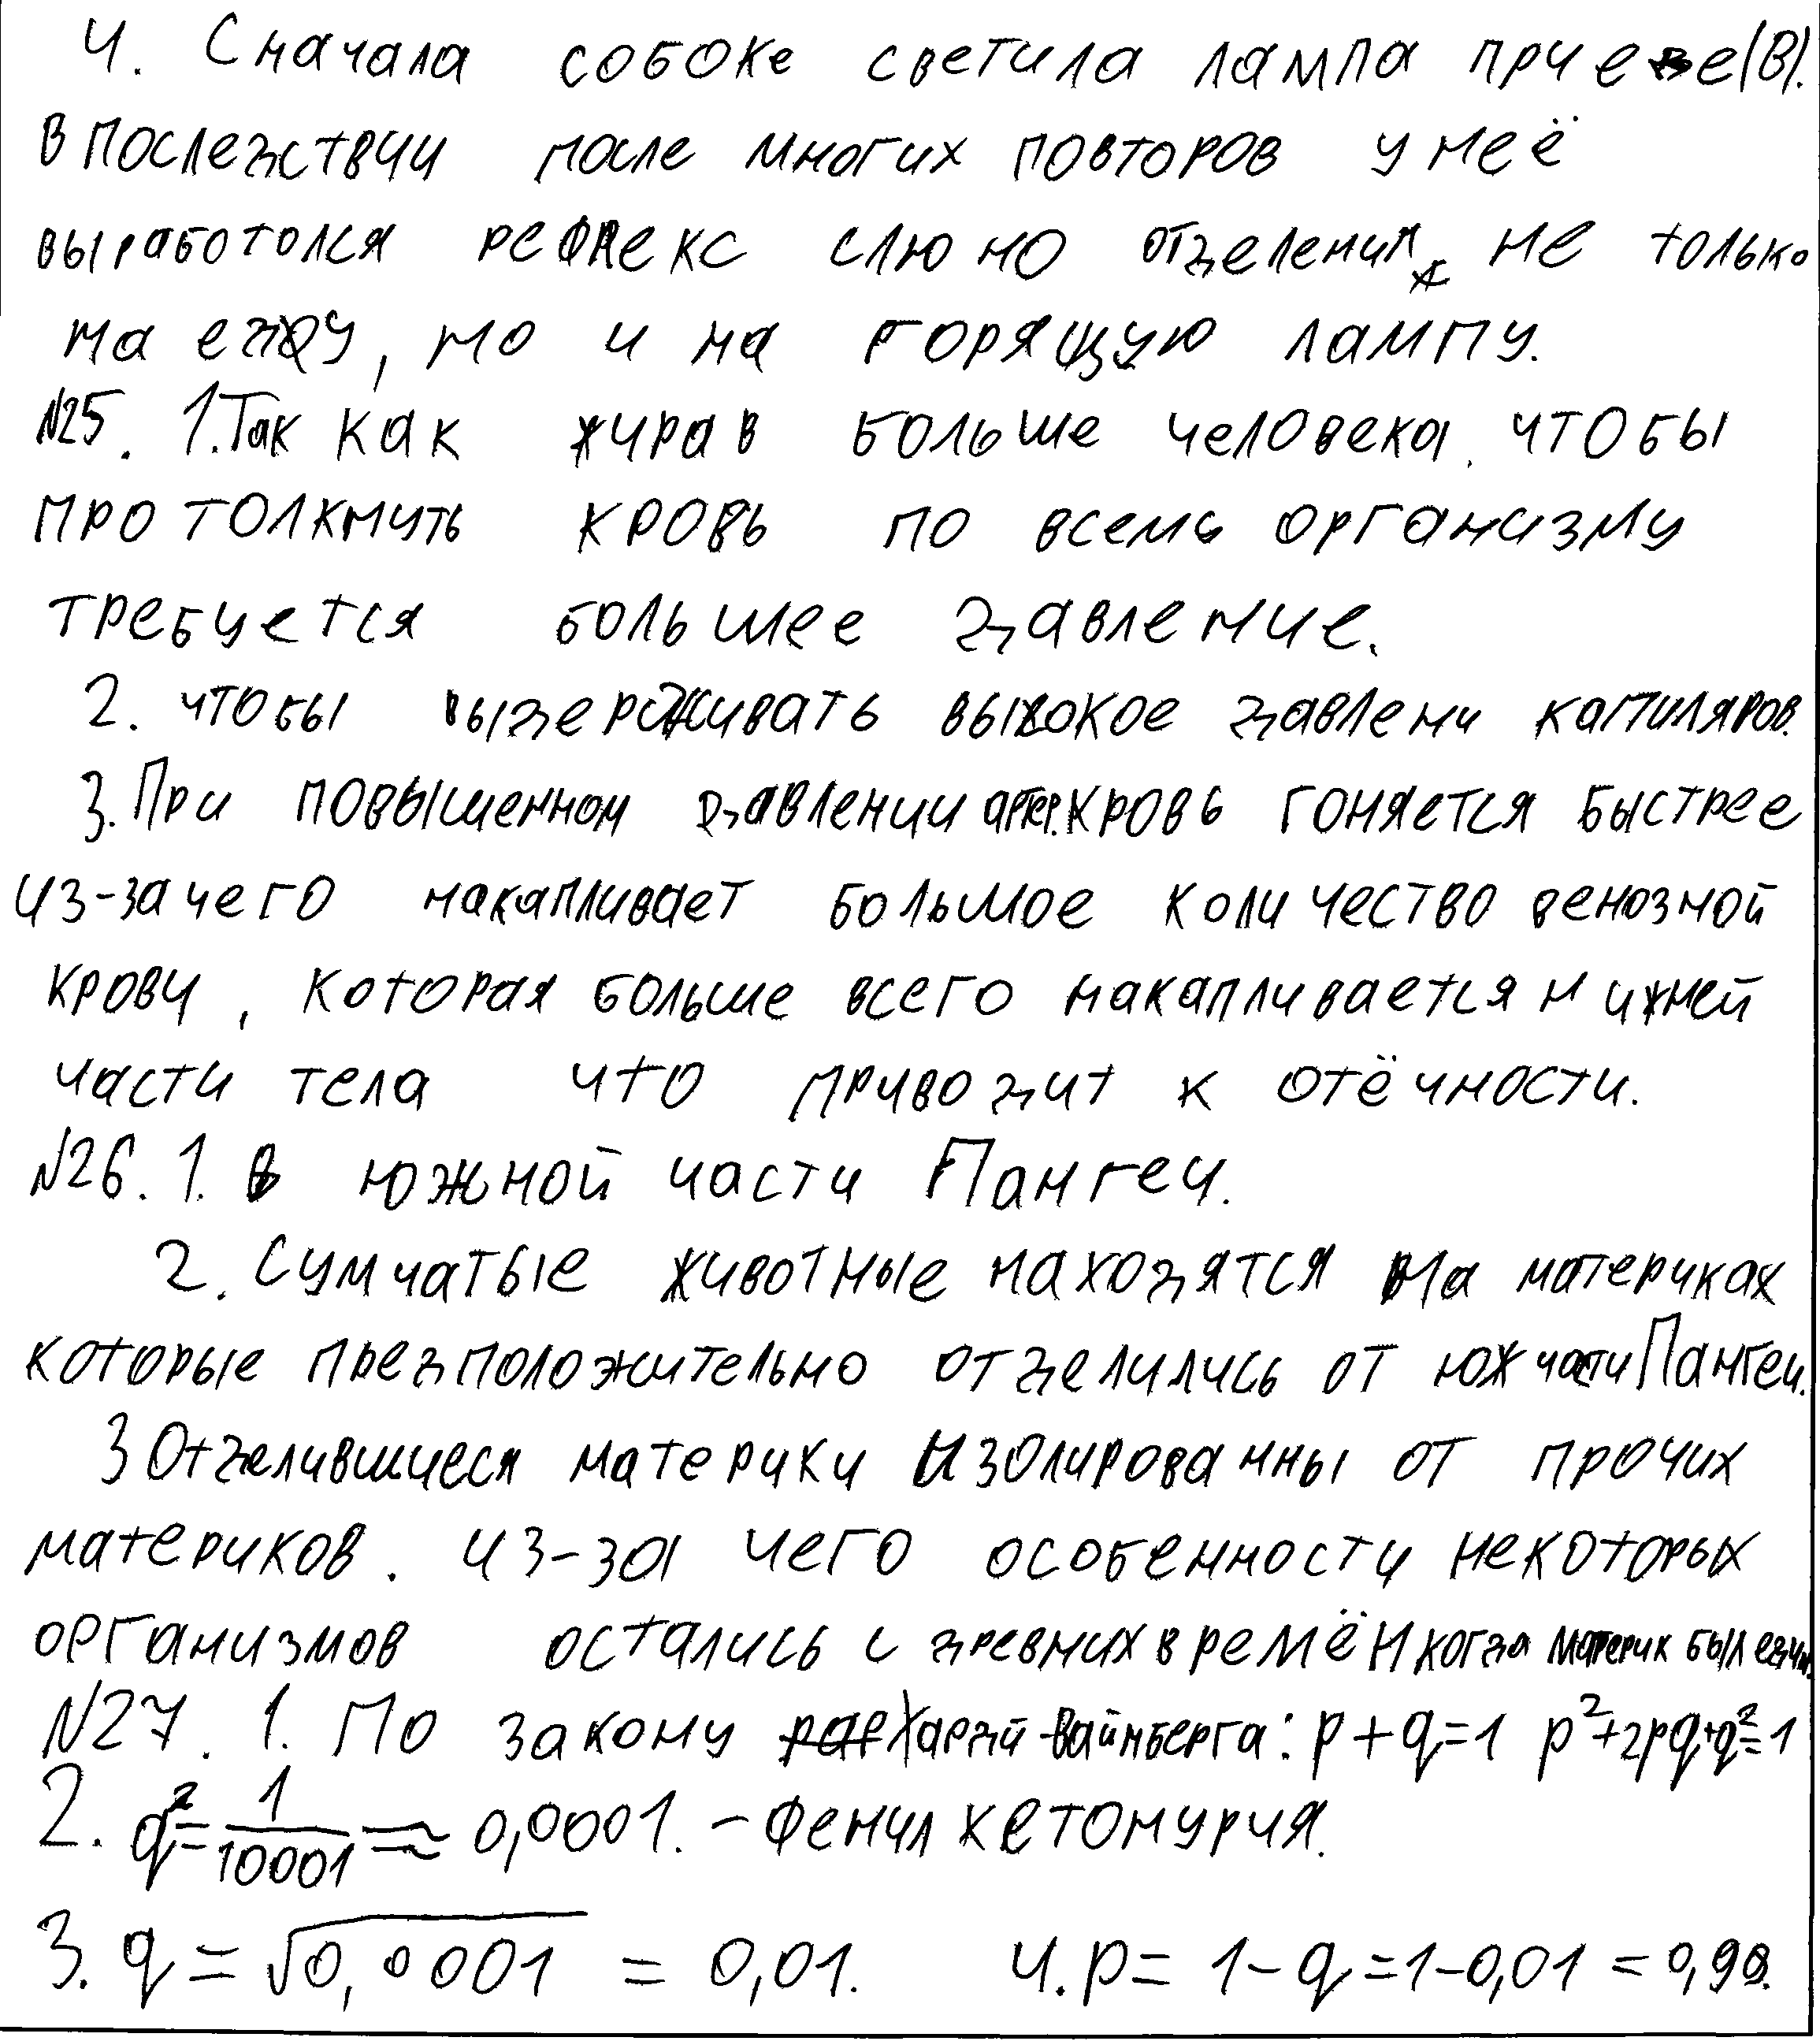 4. Сначала собоке светила лампа при еде (В).
Впоследствии после многих повторов у неё
выработолся рефлекс слюно отделения не только
на еду, но и на горящую лампу.
№25. 1. Так как жирав больше человека, чтобы
протолкнуть кровь по всему организму
требуется большее давление.
2. чтобы выдерживать высокое давлени капиляров.
3. При повышенном давлении артер. кровь гоняется быстрее
из-за чего накапливает большое количество венозной
крови, которая больше всего накапливается нижней
части тела что приводит к отёчности.
№26. 1. В южной части Пангеи.
2. Сумчатые животные находятся на материках
которые предположительно отделились от юж части Пангеи.
3 Отделившиеся материки изолированны от прочих
материков. из-за чего особенности некоторых
организмов остались с древних времён когда материк был един.
№27. 1. По закону Харди-Вайнберга: p+q=1 p²+2pq+q²=1
2. q²=1/10001≈0,0001. - Фенилкетонурия.
3. q=√0,0001 = 0,01. 4. p= 1-q=1-0,01=0,99.